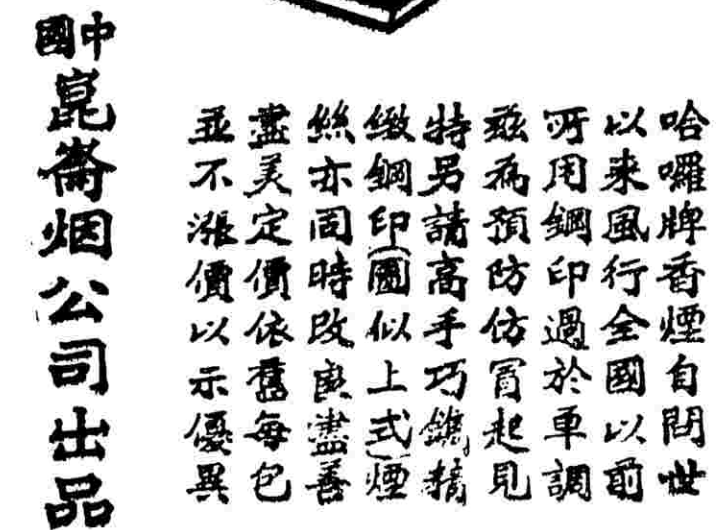 哈囉牌香煙自問世
以来風行全國以前
所用鋼印過於單調
兹為預防仿冒起見
特另請高手巧鐫精
緻鋼印(圖似上式)煙
絲亦同時改良盡善
盡美定價依舊每包
並不漲價以示優異
中國
崑崙烟公司出品